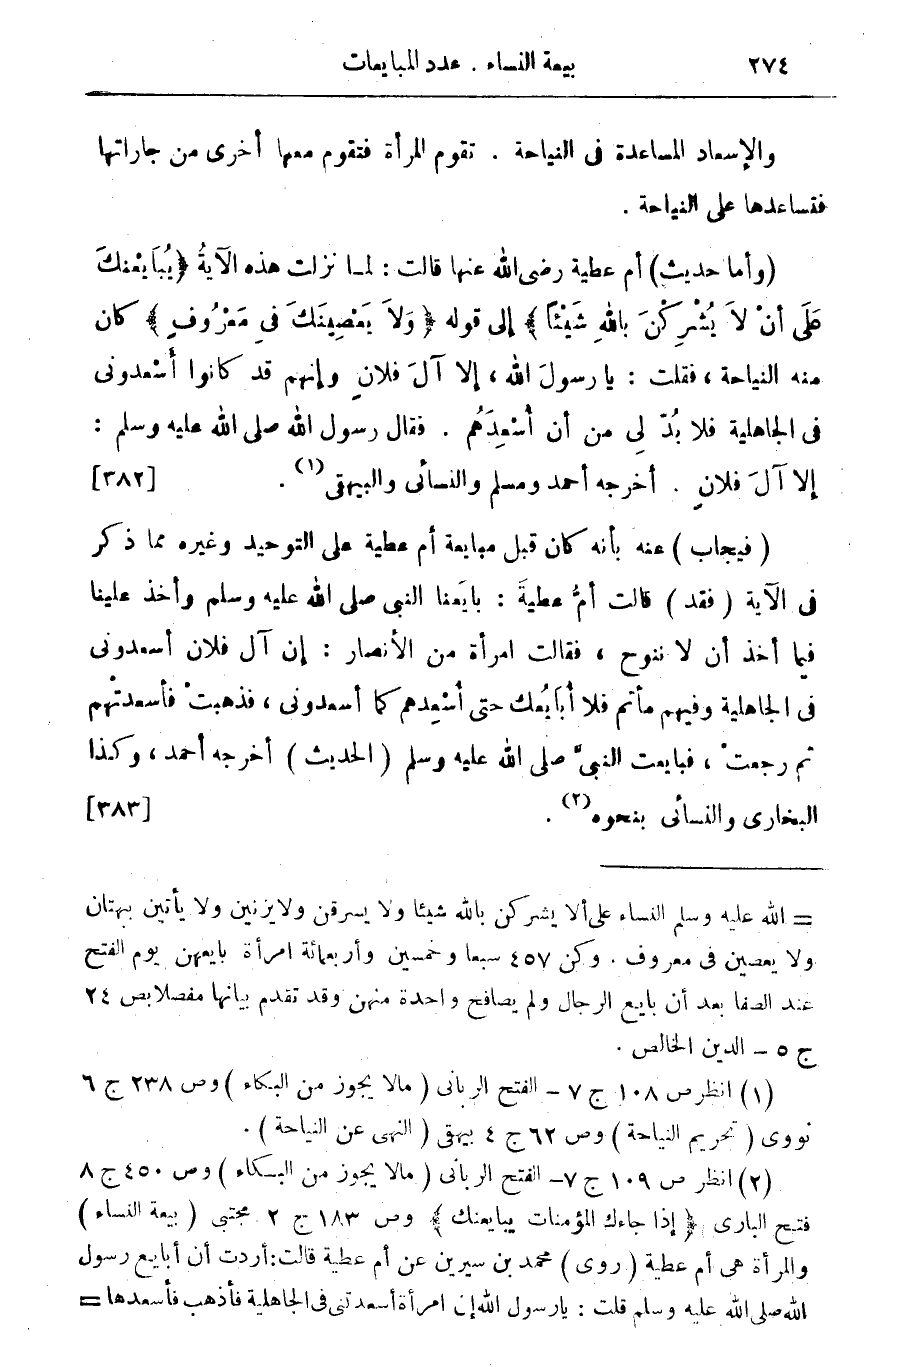 ٢٧٤ بيعة النساء . عدد المبايعات
والإسعاد المساعدة فى النياحة . تقوم المرأة فتقوم معها أخرى من جاراتها
فتساعدها على النياحة .
(وأما حديث) أم عطية رضى الله عنها قالت : لمـا نزلت هذه الآيةُ ﴿يُبَايِعْنكَ
عَلَى أنْ لاَ يُشْرِكْنَ باللهِ شَيْئًا﴾ إلى قوله ﴿وَلاَ يَعْصِينَكَ فِى مَعْرُوفٍ﴾ كان
منه النياحة ، فقلت : يا رسولَ الله ، إلا آلَ فلانٍ وإنهم قد كانوا أَسْعدونى
فى الجاهلية فلا بُدّ لِى من أن أُسْعِدَهُم . فقال رسول الله صلى الله عليه وسلم :
إلا آلَ فلانٍ . أخرجه أحمد ومسلم والنسائى والبيهقى(١) . [٣٨٢]
( فيجاب ) عنه بأنه كان قبل مبايعة أم عطية على التوحيد وغيره مما ذكر
فى الآية ( فقد ) قالت أمُّ عطيةَ : بايَعنا النبى صلى الله عليه وسلم وأخذ علينا
فيما أخذ أن لا ننوح ، فقالت امرأة من الأنصار : إن آل فلان أسعدونى
فى الجاهلية وفيهم مأتم فلا أُبَايُعك حتى أُسْعِدهم كما أسعدونى ، فذهبتْ فأسعدتْهم
ثم رجعتْ ، فبايعت النبىَّ صلى الله عليه وسلم ( الحديث ) أخرجه أحمد ، وكذا
البخارى والنسائى بنحوه(٢) . [٣٨٣]
= الله عليه وسلم النساء على ألا يشركن بالله شيئا ولا يسرقن ولايزنين ولا يأتين ببهتان
ولا يعصين فى معروف . وكن ٤٥٧ سبعا وخمسين وأربعمائة امرأة بايعهن يوم الفتح
عند الصفا بعد أن بايع الرجال ولم يصافح واحدة منهن وقد تقدم بيانها مفصلابص ٢٤
ج ٥ – الدين الخالص .
(١) انظر ص ١٠٨ ج ٧ – الفتح الربانى ( مالا يجوز من البكاء ) وص ٢٣٨ ج ٦
نووى ( تحريم النياحة ) وص ٦٢ ج ٤ بيهقى ( النهى عن النياحة ) .
(٢) انظر ص ١٠٩ ج ٧– الفتح الربانى ( مالا يجوز من البكاء ) وص ٤٥٠ ج ٨
فتح البارى ﴿ إذا جاءك المؤمنات يبايعنك ﴾ وص ١٨٣ ج ٢ مجتبى ( بيعة النساء )
والمرأة هى أم عطية ( روى ) محمد بن سيرين عن أم عطية قالت:أردت أن أبايع رسول
الله صلى الله عليه وسلم قلت : يارسول الله إن امرأة أسعدتنى فى الجاهلية فأذهب فأسعدها =